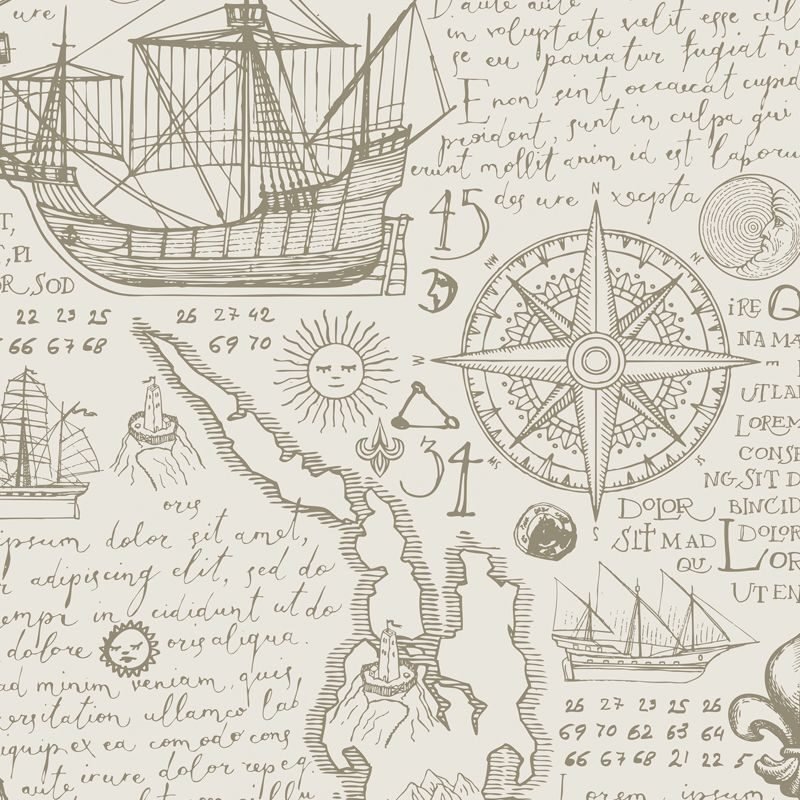 ure
D. aute aute
in voluptate velit esse cil
se eu pariatur fugiat n
E non sint occaecat cupid
proident, sunt in culpa qui
erunt mollit anim id est laboru
des ure xcepta
45
N
NW
NE
T,
,PI
OR SOD
22 23 25 26 27 42
66 67 68 69 70
iRE Q
NA MA
W
E
UT LA
LOREM
CONSE
NG SIT D
34
SW
S
DOLOR BINCID
SIT MAD DOLOR
QU LOR
UT EN
oris
ipsum dolor sit amet,
r adipiscing elit, sed do
empi in cididunt ut do
dolore oris aliqua.
ad minim veniam, quis
ersitation ullamco lab
iquip ex ea comodo cons
aute irure dolor rep eq.
26 27 23 25 26
69 70 62 63 64
66 67 68 21 22 5
Lorem ipsum